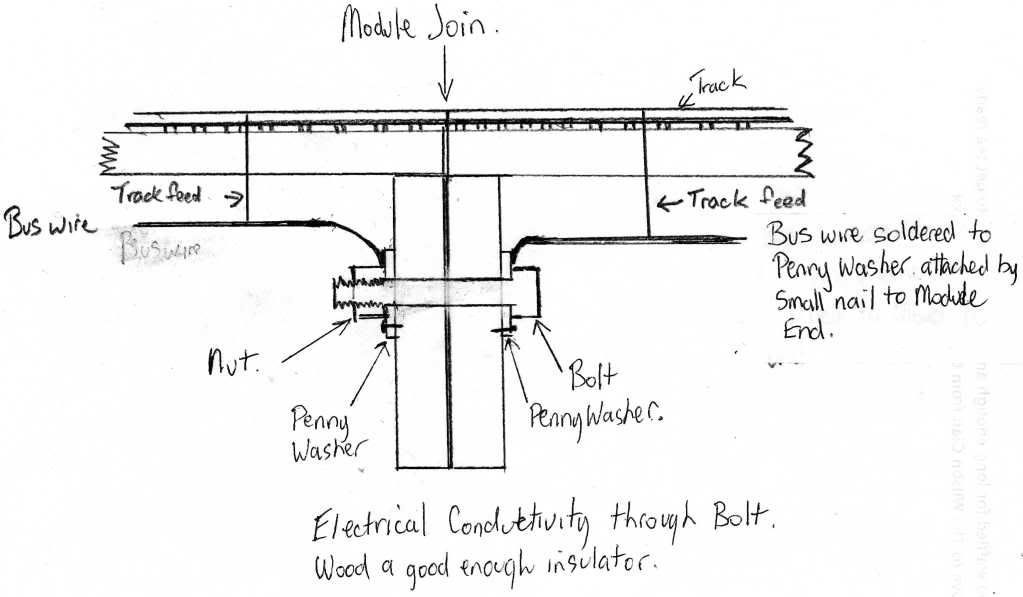 Module Join.
Track
Track feed
Track feed
Bus wire
Bus wire
Bus wire soldered to
Penny Washer. attached by
Small nail to Module
End.
Nut.
Bolt
Penny
Washer
Penny Washer.
Electrical Conductivity through Bolt.
Wood a good enough insulator.